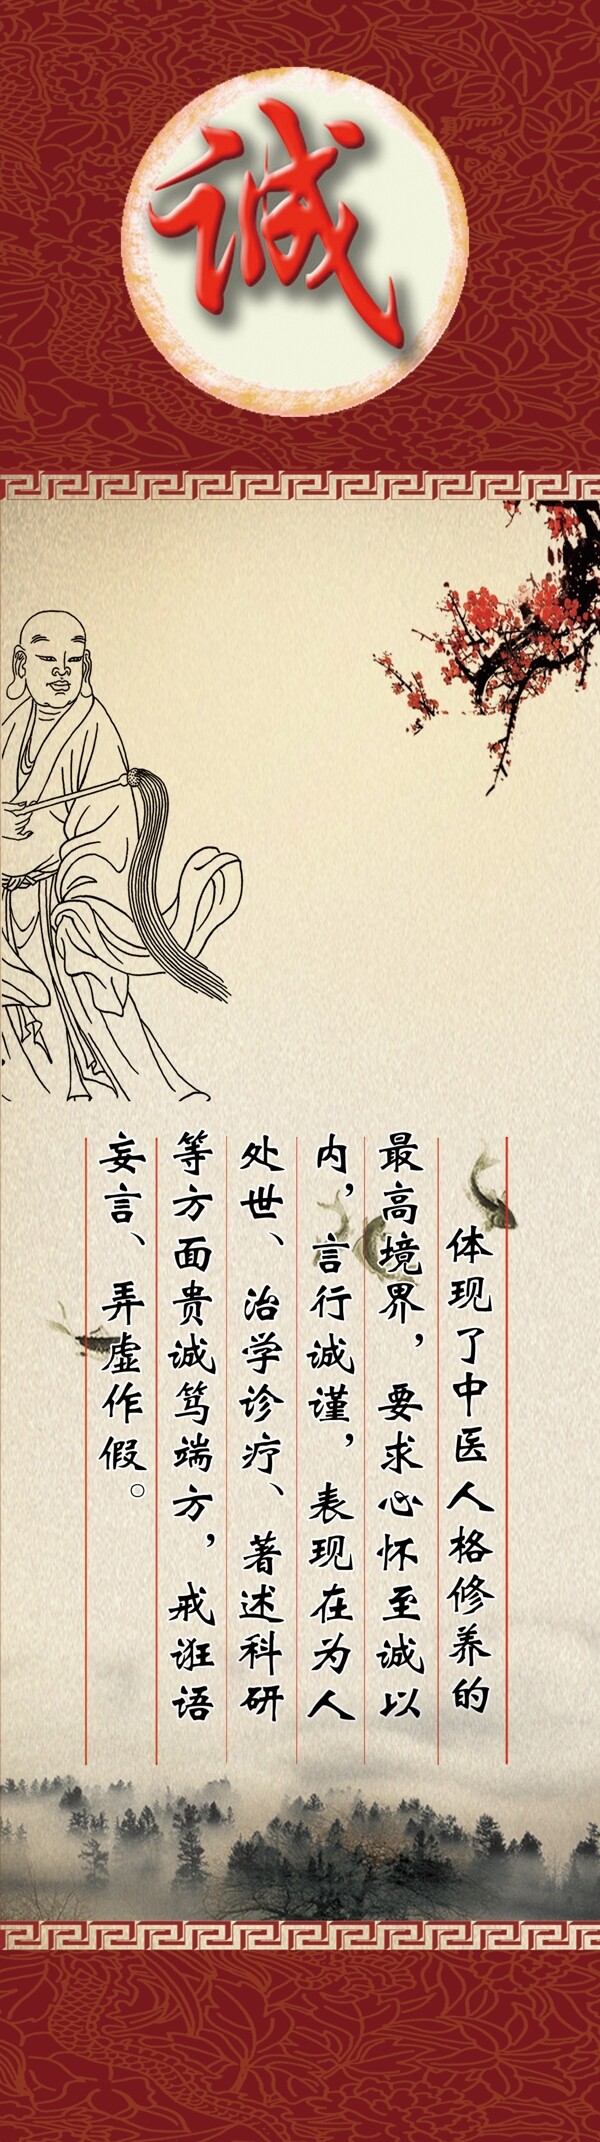 誠
体现了中医人格修养的
最高境界，要求心怀至诚以
内，言行诚谨，表现在为人
处世、治学诊疗、著述科研
等方面贵诚笃端方，戒诳语
妄言、弄虚作假。